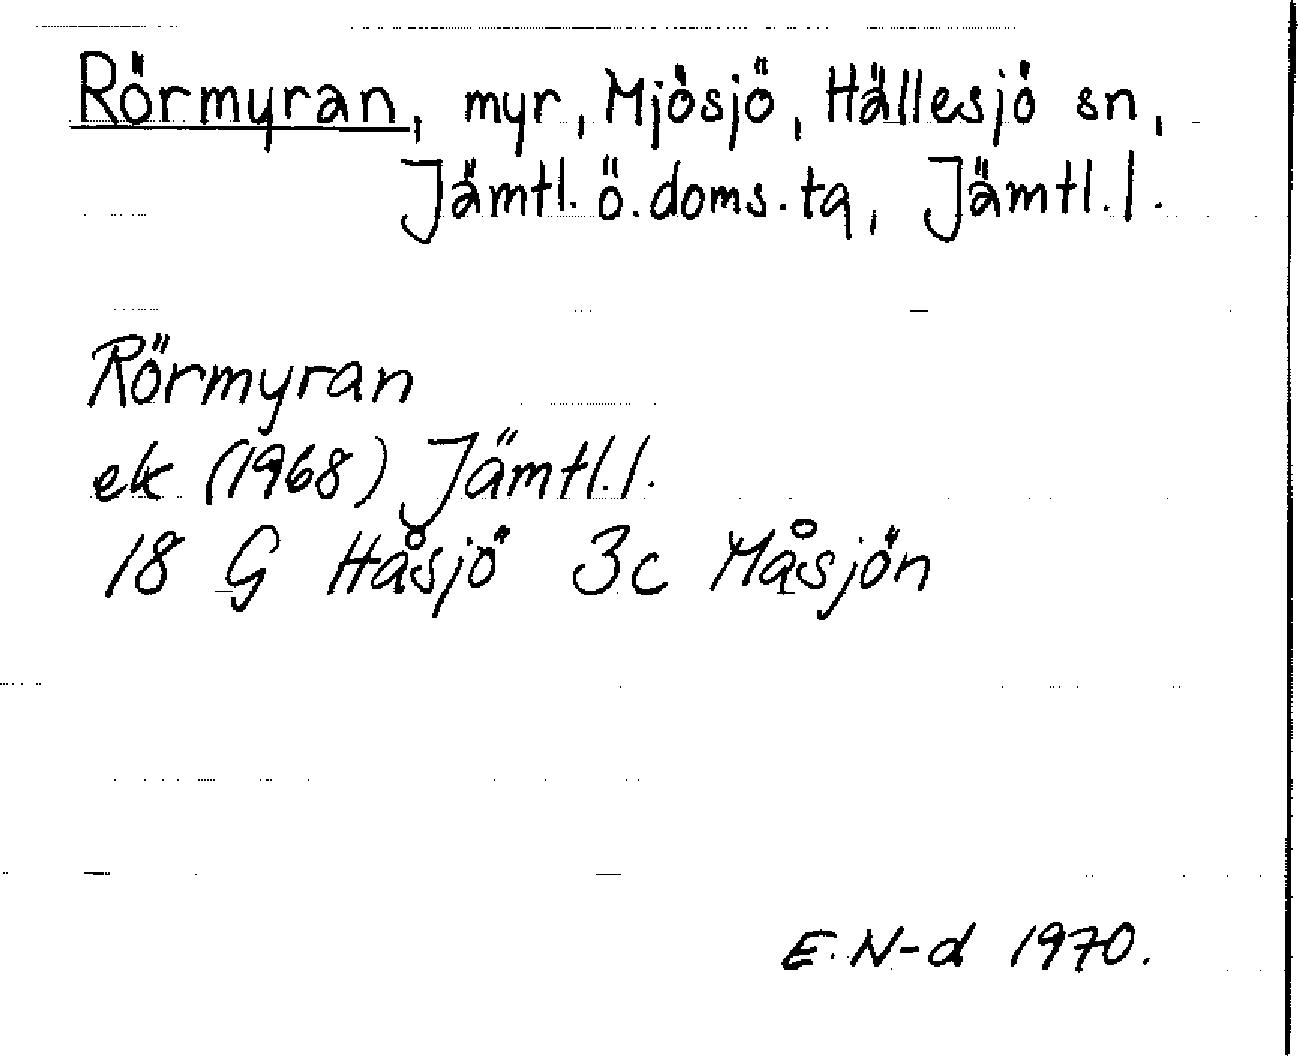 Rörmyran, myr, Mjösjö, Hällesjö sn,
Jämtl. ö. doms. tg, Jämtl. l.
Rörmyran
ek (1968) Jämtl. l.
18 G Håsjö 3c Måsjön
E. N-d 1970.